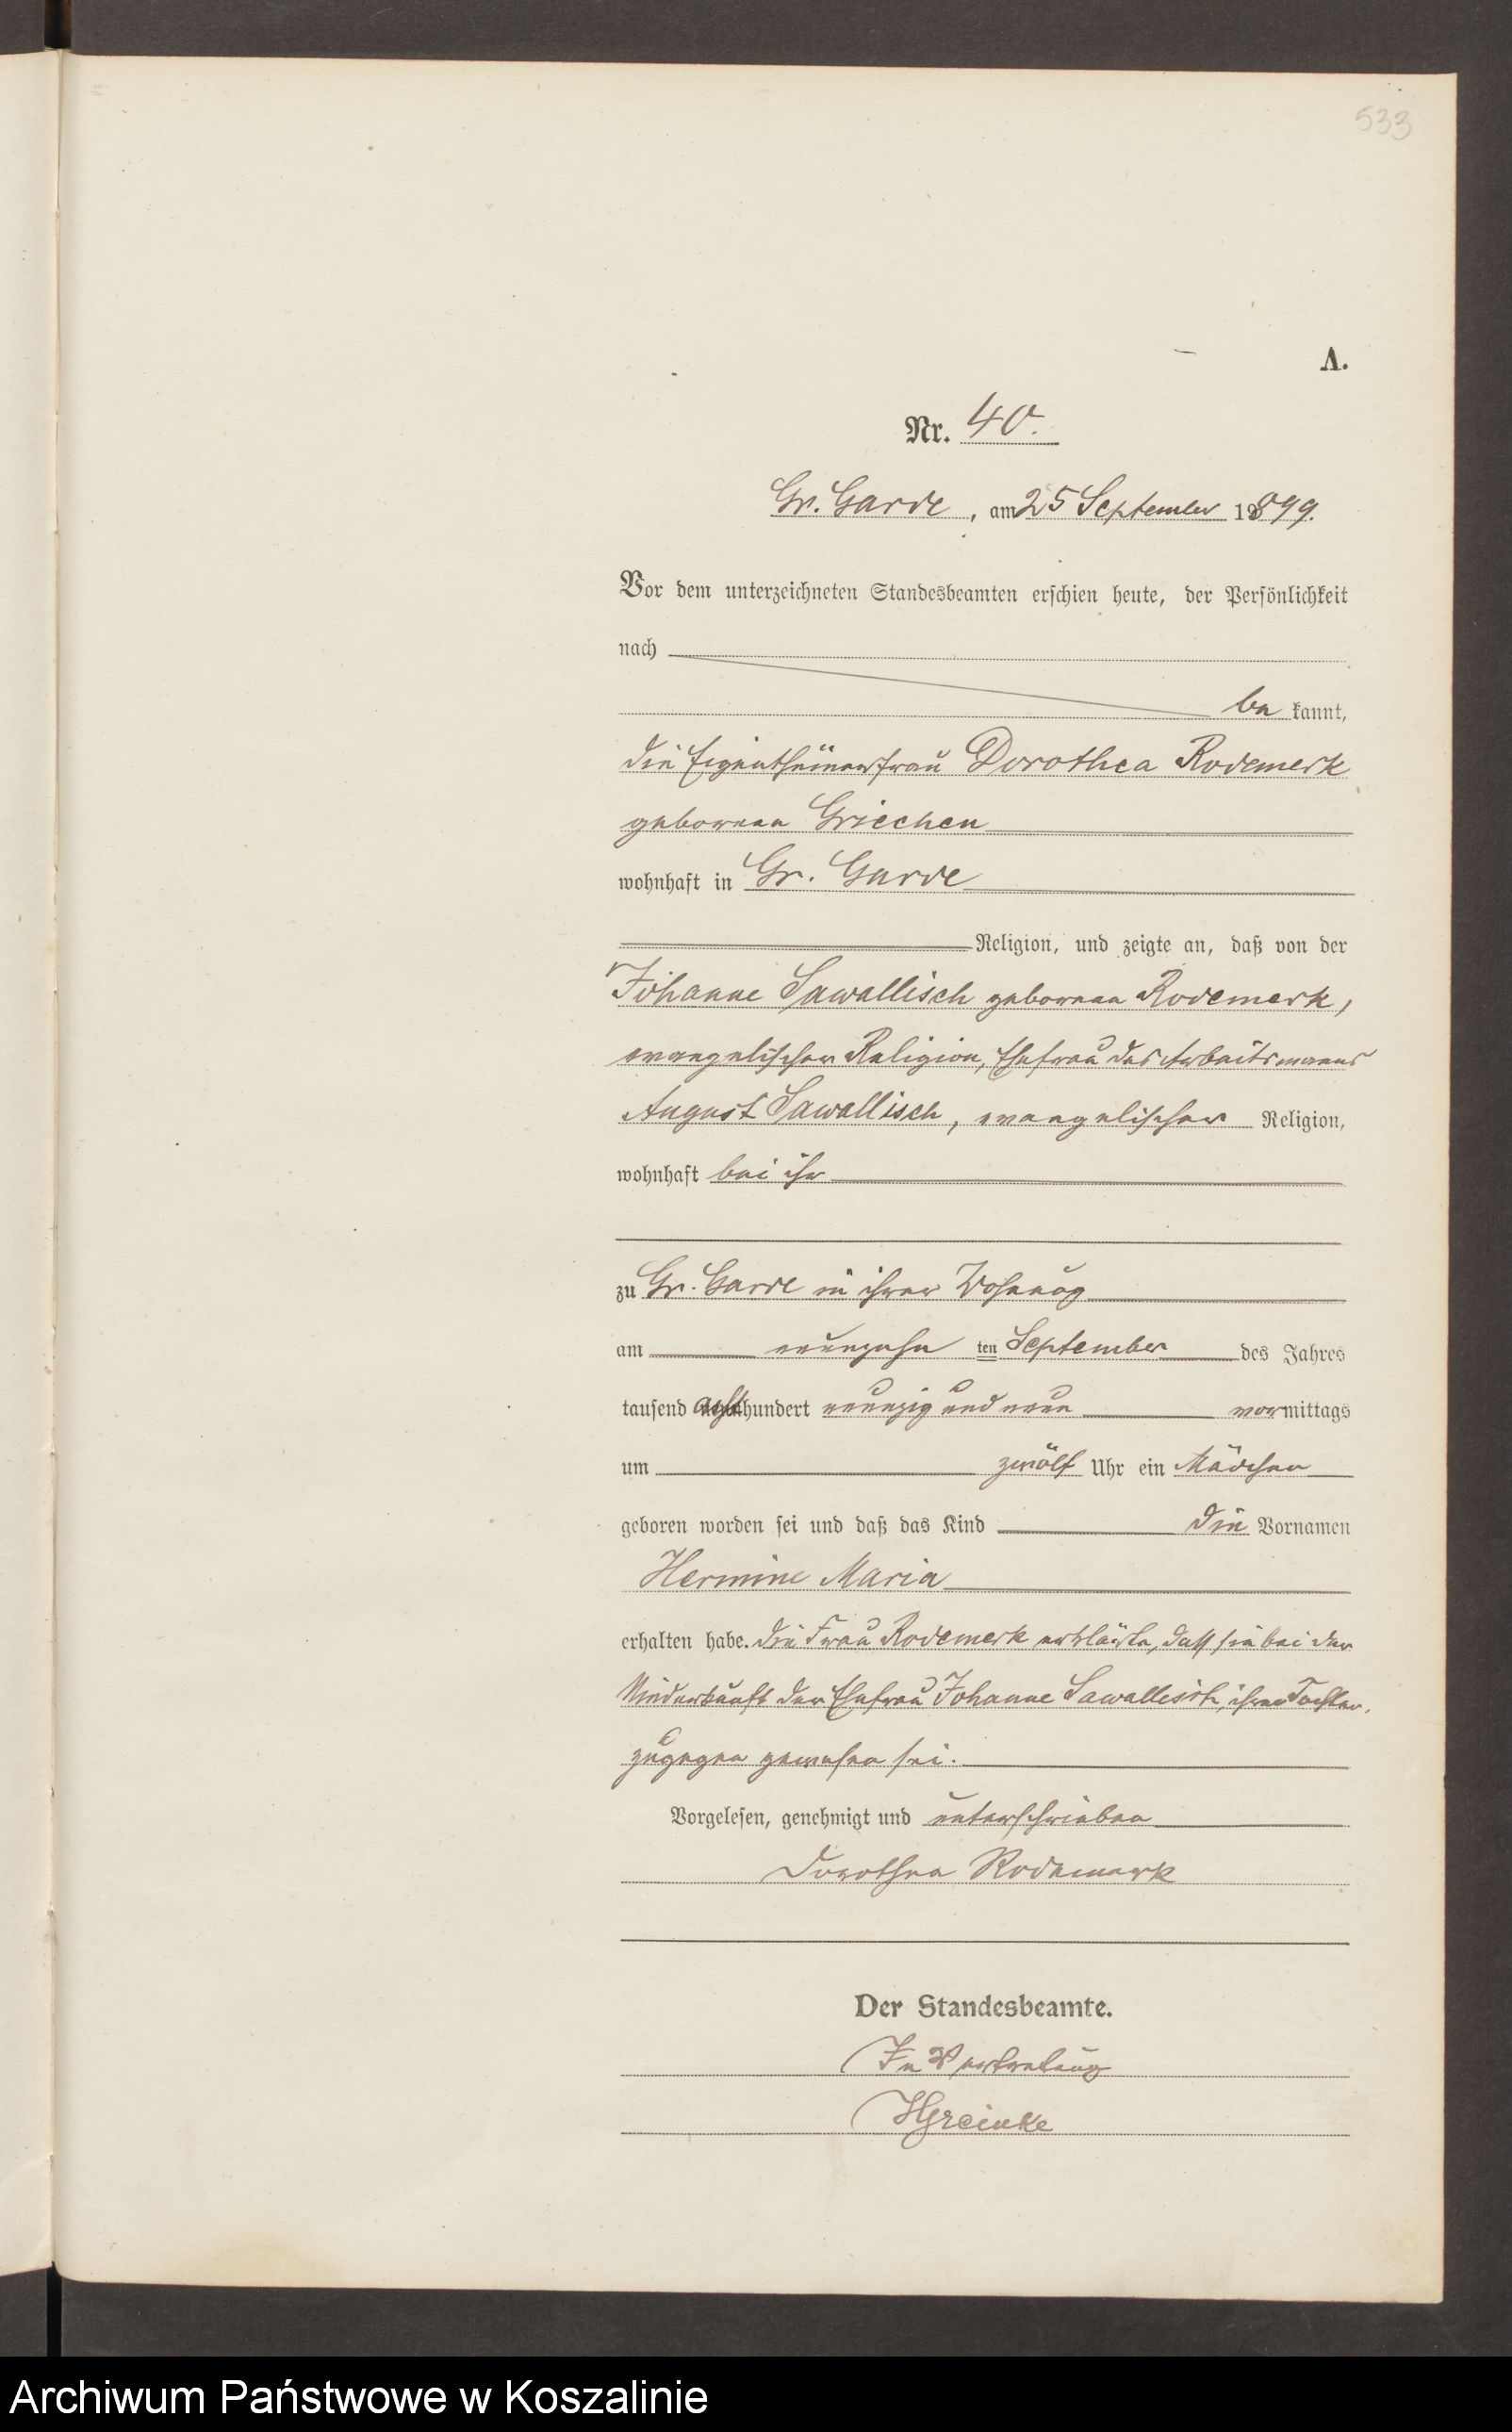 533
A.
Nr. 40.
Gr. Garde, am 25 September 1899.
Vor dem unterzeichneten Standesbeamten erschien heute, der Persönlichkeit
nach
be kannt,
die Eigenthümerfrau Dorothea Rodemerk
geborene Griechen
wohnhaft in Gr. Garde
Religion, und zeigte an, daß von der
Johanne Sawallisch geborene Rodemerk,
evangelischer Religion, Ehefrau des Arbeitsmanns
August Sawallisch, evangelischer Religion,
wohnhaft bei ihr
zu Gr. Garde in ihrer Wohnung
am neunzehn ten September des Jahres
tausend achthundert neunzig und neun vormittags
um zwölf Uhr ein Mädchen
geboren worden sei und daß das Kind die Vornamen
Hermine Maria
erhalten habe. Die Frau Rodemerk erklärte, daß sie bei der
Niederkunft der Ehefrau Johanne Sawallisch, ihrer Tochter,
zugegen gewesen sei.
Vorgelesen, genehmigt und unterschrieben
Dorothea Rodemerk
Der Standesbeamte.
In Vertretung
HGreinke
Archiwum Państwowe w Koszalinie